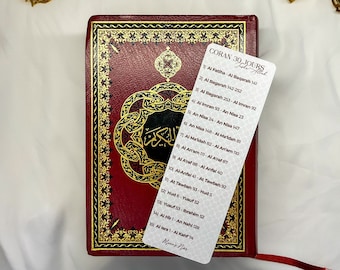 CORAN 30 JOURS
1) Al Fatiha - Al Baqarah 141
2) Al Baqarah 142-252
3) Al Baqarah 253 - Al Imran 92
4) Al Imran 93 - An Nisa 23
5) An Nisa 24 - An Nisa 147
6) An Nisa 148 - Al Ma'idah 82
7) Al Ma'idah 83 - Al An'am 110
8) Al An'am 111 - Al A'raf 87
9) Al A'raf 88 - Al Anfal 40
10) Al Anfal 41 - At Tawbah 92
11) At Tawbah 93 - Hud 5
12) Hud 6 - Yusuf 52
13) Yusuf 53 - Ibrahim 52
14) Al Hijr 1 - An Nahl 128
15) Al Isra 1 - Al Kahf 74
الكريم